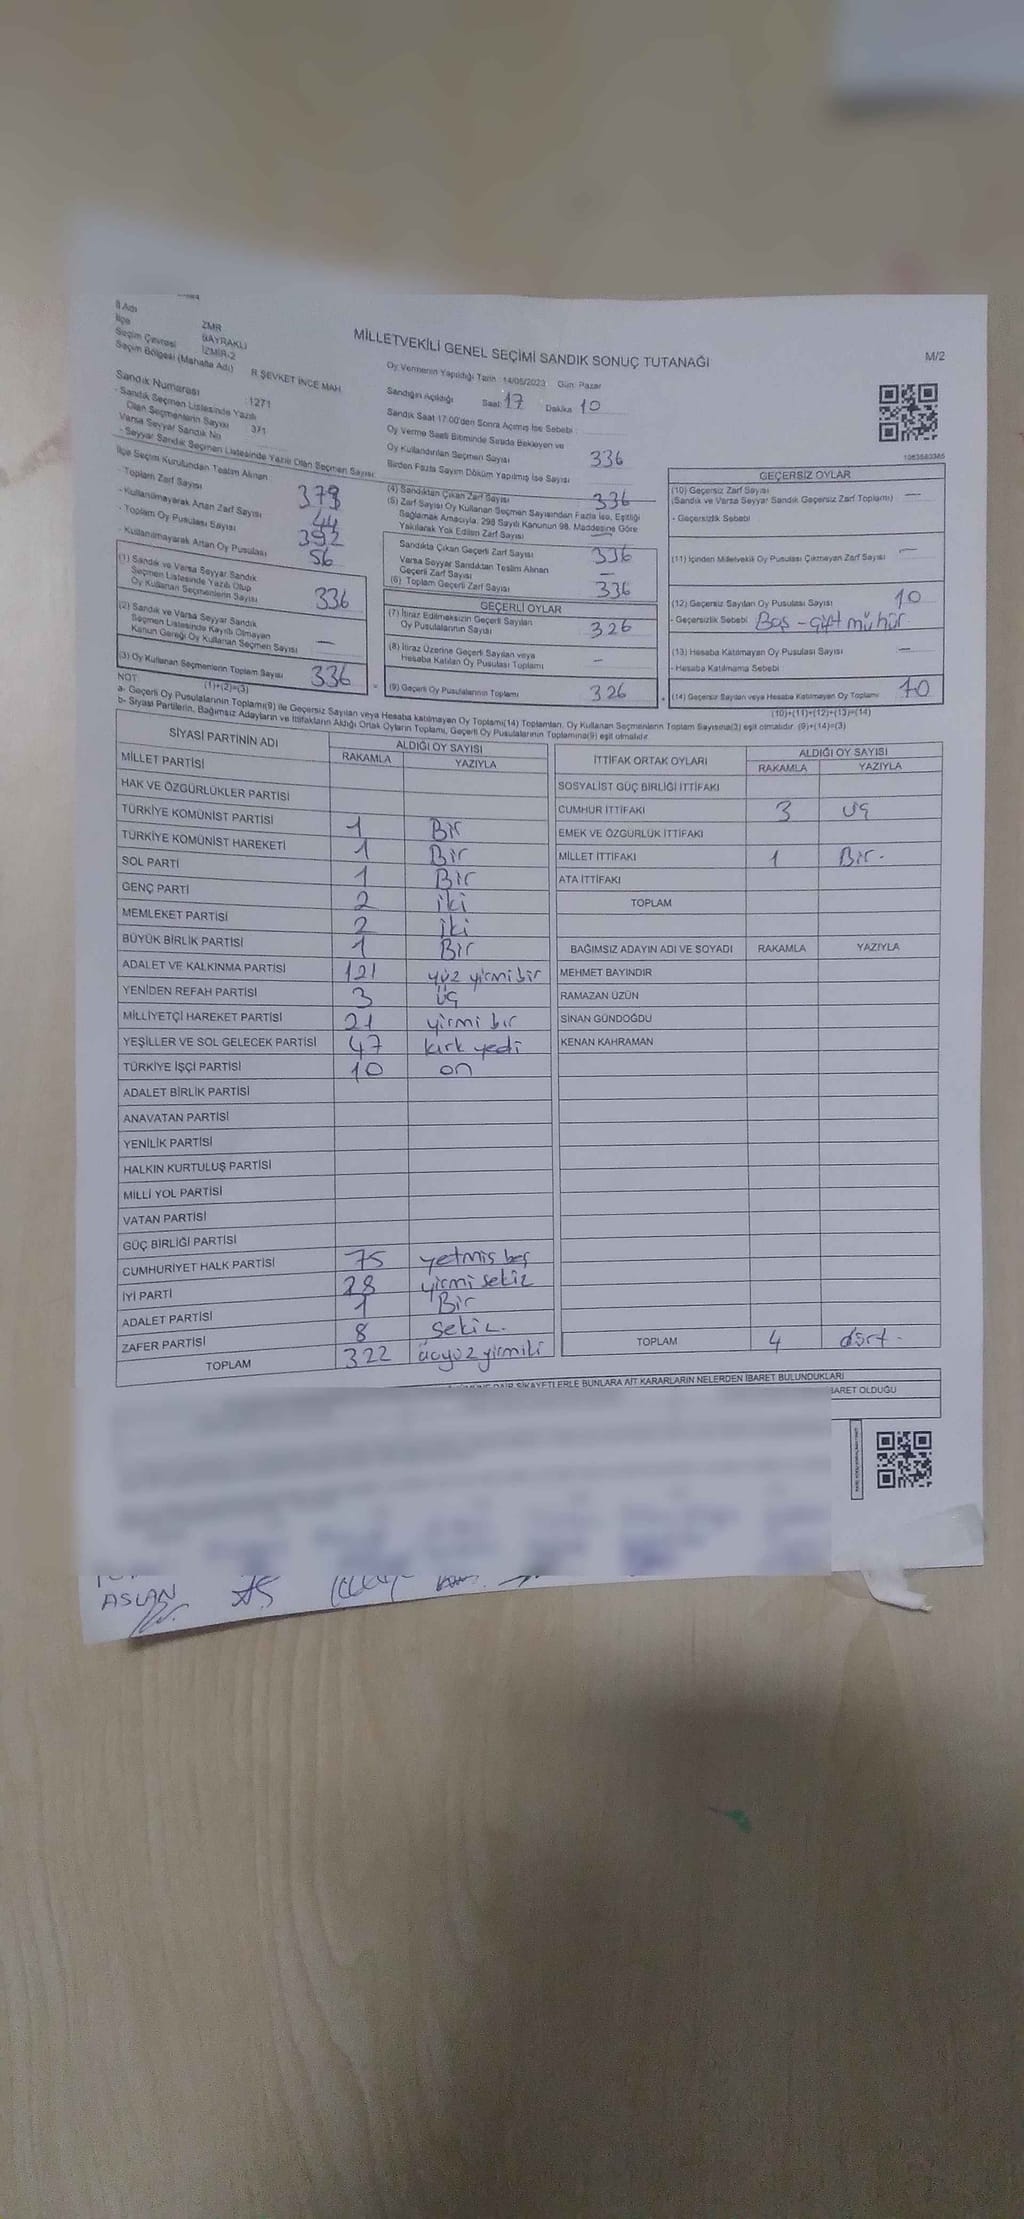 İl Adı ZMR
İlçe BAYRAKLI
Seçim Çevresi İZMİR-2
Seçim Bölgesi (Mahalle Adı) R.ŞEVKET İNCE MAH.
MİLLETVEKİLİ GENEL SEÇİMİ SANDIK SONUÇ TUTANAĞI
M/2
Oy Vermenin Yapıldığı Tarih : 14/05/2023 Gün: Pazar
Sandığın Açıldığı Saat: 17 Dakika 10
Sandık Saat 17:00'den Sonra Açılmış İse Sebebi :
Oy Verme Saati Bitiminde Sırada Bekleyen ve
Oy Kullandırılan Seçmen Sayısı 336
Birden Fazla Sayım Döküm Yapılmış İse Sayısı
Sandık Numarası : 1271
- Sandık Seçmen Listesinde Yazılı
Olan Seçmenlerin Sayısı 371
Varsa Seyyar Sandık No
- Seyyar Sandık Seçmen Listesinde Yazılı Olan Seçmen Sayısı:
İlçe Seçim Kurulundan Teslim Alınan
- Toplam Zarf Sayısı
- Kullanılmayarak Artan Zarf Sayısı 44
- Toplam Oy Pusulası Sayısı 392
- Kullanılmayarak Artan Oy Pusulası 56
(1) Sandık ve Varsa Seyyar Sandık
Seçmen Listesinde Yazılı Olup
Oy Kullanan Seçmenlerin Sayısı 336
(2) Sandık ve Varsa Seyyar Sandık
Seçmen Listesinde Kayıtlı Olmayan
Kanun Gereği Oy Kullanan Seçmen Sayısı —
(3) Oy Kullanan Seçmenlerin Toplam Sayısı 336
(1)+(2)=(3)
(4) Sandıktan Çıkan Zarf Sayısı 336
(5) Zarf Sayısı Oy Kullanan Seçmen Sayısından Fazla İse, Eşitliği
Sağlamak Amacıyla, 298 Sayılı Kanunun 98. Maddesine Göre
Yakılarak Yok Edilen Zarf Sayısı —
Sandıkta Çıkan Geçerli Zarf Sayısı 336
Varsa Seyyar Sandıktan Teslim Alınan
Geçerli Zarf Sayısı —
(6) Toplam Geçerli Zarf Sayısı 336
GEÇERLİ OYLAR
(7) İtiraz Edilmeksizin Geçerli Sayılan
Oy Pusulalarının Sayısı 326
(8) İtiraz Üzerine Geçerli Sayılan veya
Hesaba Katılan Oy Pusulası Toplamı —
(9) Geçerli Oy Pusulalarının Toplamı 326
1063583365
GEÇERSİZ OYLAR
(10) Geçersiz Zarf Sayısı
(Sandık ve Varsa Seyyar Sandık Geçersiz Zarf Toplamı) —
- Geçersizlik Sebebi
(11) İçinden Milletvekili Oy Pusulası Çıkmayan Zarf Sayısı —
(12) Geçersiz Sayılan Oy Pusulası Sayısı 10
- Geçersizlik Sebebi Boş - çift mühür
(13) Hesaba Katılmayan Oy Pusulası Sayısı —
- Hesaba Katılmama Sebebi
(14) Geçersiz Sayılan veya Hesaba Katılmayan Oy Toplamı 10
(10)+(11)+(12)+(13)=(14)
NOT
a- Geçerli Oy Pusulalarının Toplamı(9) ile Geçersiz Sayılan veya Hesaba katılmayan Oy Toplamı(14) Toplamları, Oy Kullanan Seçmenlerin Toplam Sayısına(3) eşit olmalıdır. (9)+(14)=(3)
b- Siyasi Partilerin, Bağımsız Adayların ve İttifakların Aldığı Ortak Oyların Toplamı, Geçerli Oy Pusulalarının Toplamına(9) eşit olmalıdır.
SİYASİ PARTİNİN ADI ALDIĞI OY SAYISI
RAKAMLA YAZIYLA
MİLLET PARTİSİ
HAK VE ÖZGÜRLÜKLER PARTİSİ
TÜRKİYE KOMÜNİST PARTİSİ 1 Bir
TÜRKİYE KOMÜNİST HAREKETİ 1 Bir
SOL PARTİ 1 Bir
GENÇ PARTİ 2 iki
MEMLEKET PARTİSİ 2 iki
BÜYÜK BİRLİK PARTİSİ 1 Bir
ADALET VE KALKINMA PARTİSİ 121 yüz yirmi bir
YENİDEN REFAH PARTİSİ 3 üç
MİLLİYETÇİ HAREKET PARTİSİ 21 yirmi bir
YEŞİLLER VE SOL GELECEK PARTİSİ 47 kırk yedi
TÜRKİYE İŞÇİ PARTİSİ 10 on
ADALET BİRLİK PARTİSİ
ANAVATAN PARTİSİ
YENİLİK PARTİSİ
HALKIN KURTULUŞ PARTİSİ
MİLLİ YOL PARTİSİ
VATAN PARTİSİ
GÜÇ BİRLİĞİ PARTİSİ
CUMHURİYET HALK PARTİSİ 75 yetmiş beş
İYİ PARTİ 28 yirmi sekiz
ADALET PARTİSİ 1 Bir
ZAFER PARTİSİ 8 sekiz.
TOPLAM 322 üçyüz yirmiiki
İTTİFAK ORTAK OYLARI ALDIĞI OY SAYISI
RAKAMLA YAZIYLA
SOSYALİST GÜÇ BİRLİĞİ İTTİFAKI
CUMHUR İTTİFAKI 3 üç
EMEK VE ÖZGÜRLÜK İTTİFAKI
MİLLET İTTİFAKI 1 Bir.
ATA İTTİFAKI
TOPLAM
BAĞIMSIZ ADAYIN ADI VE SOYADI RAKAMLA YAZIYLA
MEHMET BAYINDIR
RAMAZAN ÜZÜN
SİNAN GÜNDOĞDU
KENAN KAHRAMAN
TOPLAM 4 dört.
ŞİKAYETLERLE BUNLARA AİT KARARLARIN NELERDEN İBARET BULUNDUKLARI
BARET OLDUĞU
ASLAN